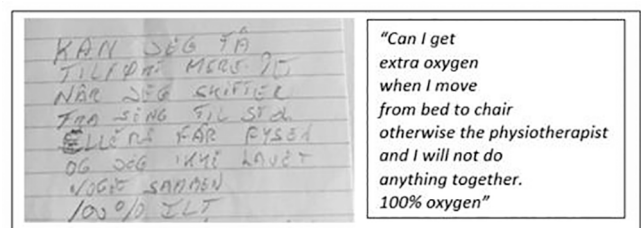 KAN JEG FÅ
TILFØRT MERE ILT
NÅR JEG SKIFTER
FRA SENG TIL STOL
ELLERS FÅR FYSEN
OG JEG IKKE LAVET
NOGET SAMMEN
100% ILT
“Can I get
extra oxygen
when I move
from bed to chair
otherwise the physiotherapist
and I will not do
anything together.
100% oxygen”